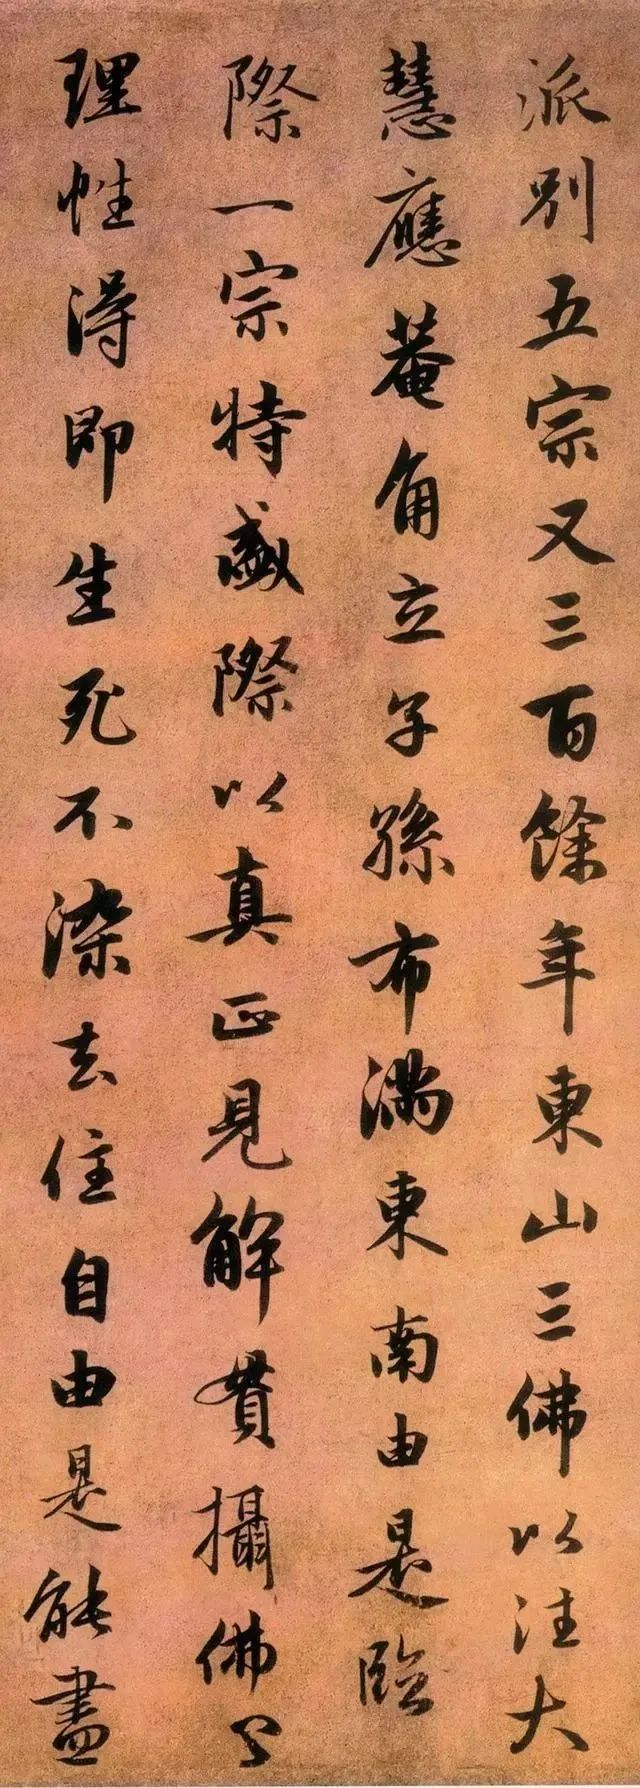 派別五宗又三百餘年東山三佛以往大
慧應菴角立子孫布滿東南由是臨
際一宗特盛際以真正見解貫攝佛
理性得即生死不染去住自由是能盡